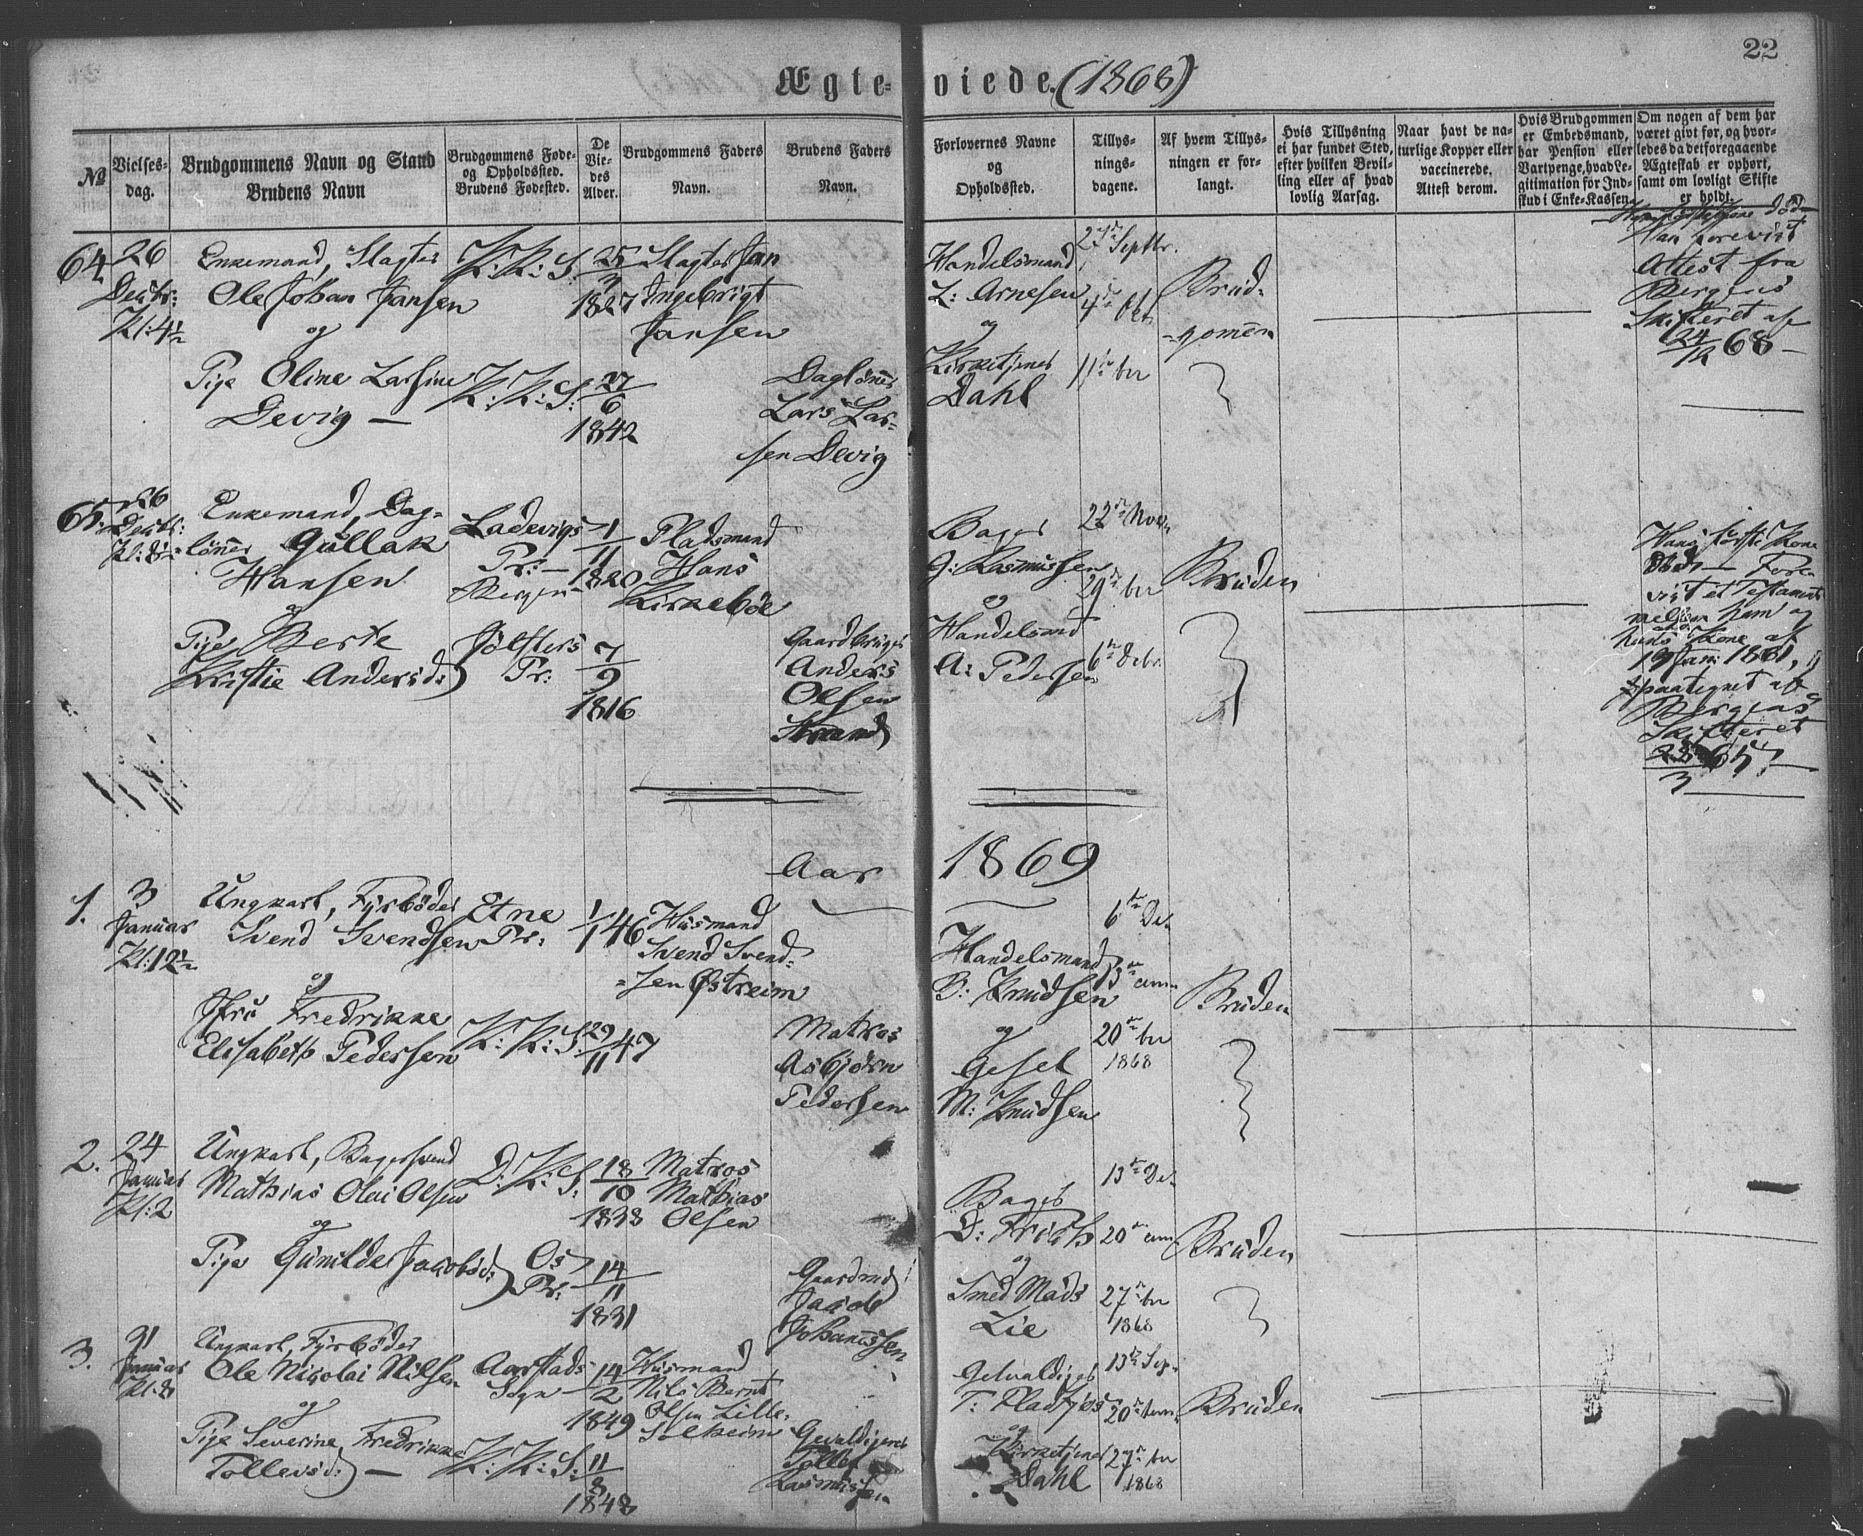 22
Ægte= viede. (1868)
№
Vielses-
dag.
Brudgommens Navn og Stand
Brudens Navn
Brudgommens Føde-
og Opholdssted.
Brudens Fødested.
De
Vie-
des
Alder.
Brudgommens Faders
Navn.
Brudens Faders
Navn.
Forlovernes Navne
og
Opholdssted.
Tillys-
nings-
dagene.
Af hvem Tillys-
ningen er for-
langt.
Hvis Tillysning
ei har fundet Sted,
efter hvilken Bevil-
ling eller af hvad
lovlig Aarsag.
Naar havt de na-
turlige Kopper eller
vaccinerede.
Attest derom.
Hvis Brudgommen
er Embedsmand,
har Pension eller
Vartpenge, hvad Le-
gitimation for Ind-
skud i Enke-Kassen.
Om nogen af dem har
været givt før, og hvor-
ledes da det foregaaende
Ægteskab er ophørt,
samt om lovligt Skifte
er holdt.
64
26
Decbr:
Kl: 4½
Enkemand, Slagter
Ole Johan Jansen
og
Pige Oline Larsine
Devig —
K: K: S:
K: K: S:
25
1827
27/6
1842
Slagter Jan
Ingebrigt
Jansen
Dagløner
Lars Lar=
sen Devig
Handelsmand
L: Arnesen
og
Kirketjener
Dahl
27de Septbr.
4de Okt.
11te ber
Brud-
-gomen
Hans første Kone død
Han forevist
Attest fra
Bergens
Skifteret af
24/12 68 —
65.
26
Decbr:
Enkemand, Dag-
løner Gullak
Hansen
og
Pige Berte
Kristie Andersd:
Ladevigs
Pr: —
Bergen
Jølsters
Pr:
1/11
1820
7/9
1816
Pladsmand
Hans
Kirkebøe
Gaardbruger
Anders
Olsen
Strand
Bager
G: Rasmussen
og
Handelsmd
A: Pedersen
22de Novbr
29de ber
6te Debr.
Bruden
Hans første Kone
død — Fore
vist et Testament
mellem ham og
hans Kone af
19 Jan: 1861,
paategnet af
Bergens
Skifteret
65. —
3
Aar 1869
1.
3
Januar
Kl: 12½
Ungkarl, Fyrbøder
Svend Svendsen
og
Fru Fredrikke
Elisabeth Pedersen
Etne
Pr:
K: K: S:
1/1 46
29/11 47
Husmand
Svend Svend=
=sen Østreim
Matros
Asbjørn
Pedersen
Handelsmand
B: Knudsen
og
Gesel
M: Knudsen
6te De.
13te am.
20de ber
1868
Bruden
2.
24
Januar
Kl: 2
Ungkarl, Bagersvend
Mathias Olai Olsen
og
Pige Gunilde Jacobsd:
D: K: S:
Os
Pr:
18/10
1838
14/11
1831
Matros
Mathias
Olsen
Gaardmd
Jacob
Johannessen
Bager
D: Früth
og
Smed Mads
Lie
13de De.
20de am.
27de ber
1868
Bruden
3.
31
Januar
Kl: 8
Ungkarl, Fyrbøder
Ole Nikolai Nilsen
og
Pige Severine Fredrikke
Tollevsd: —
Aarstads
Sogn
K: K: S:
14/2
1849
11/8
1848
Husmand
Nils Bernt
Olsen Lille
Solheim
Gevaldiger
Tollef
Rasmussen
Gevaldiger
T: Pladtjos
og
Kirketjener
Dahl
13de Sep.
20de
27de ber
1868
Bruden